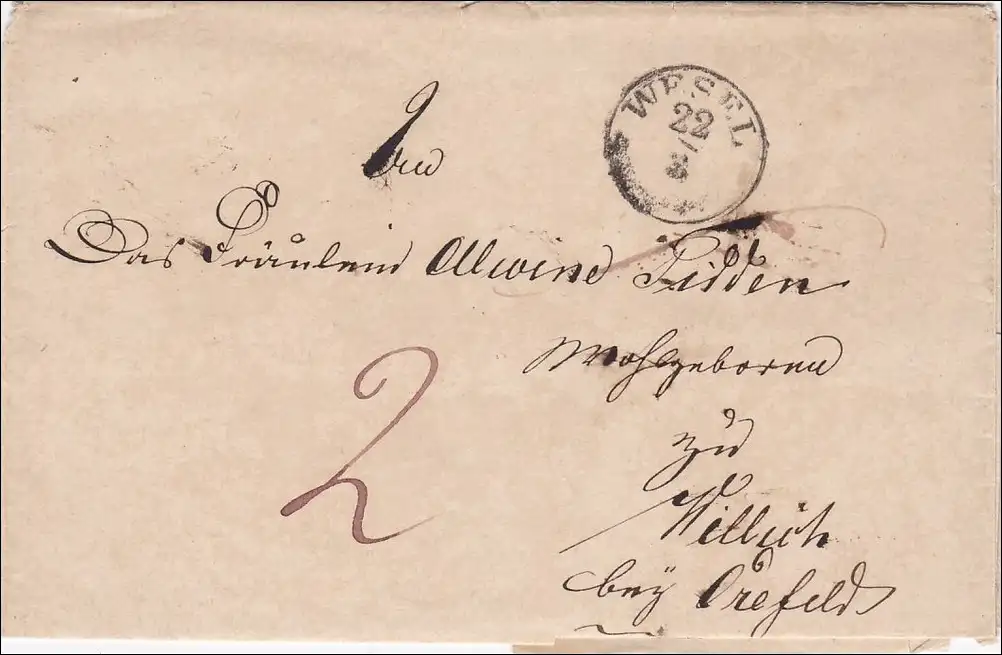 WESEL
22
8
An
Das Fräulein Alwine Fidden
Wohlgeboren
2
zu
Willich
bey Crefeld